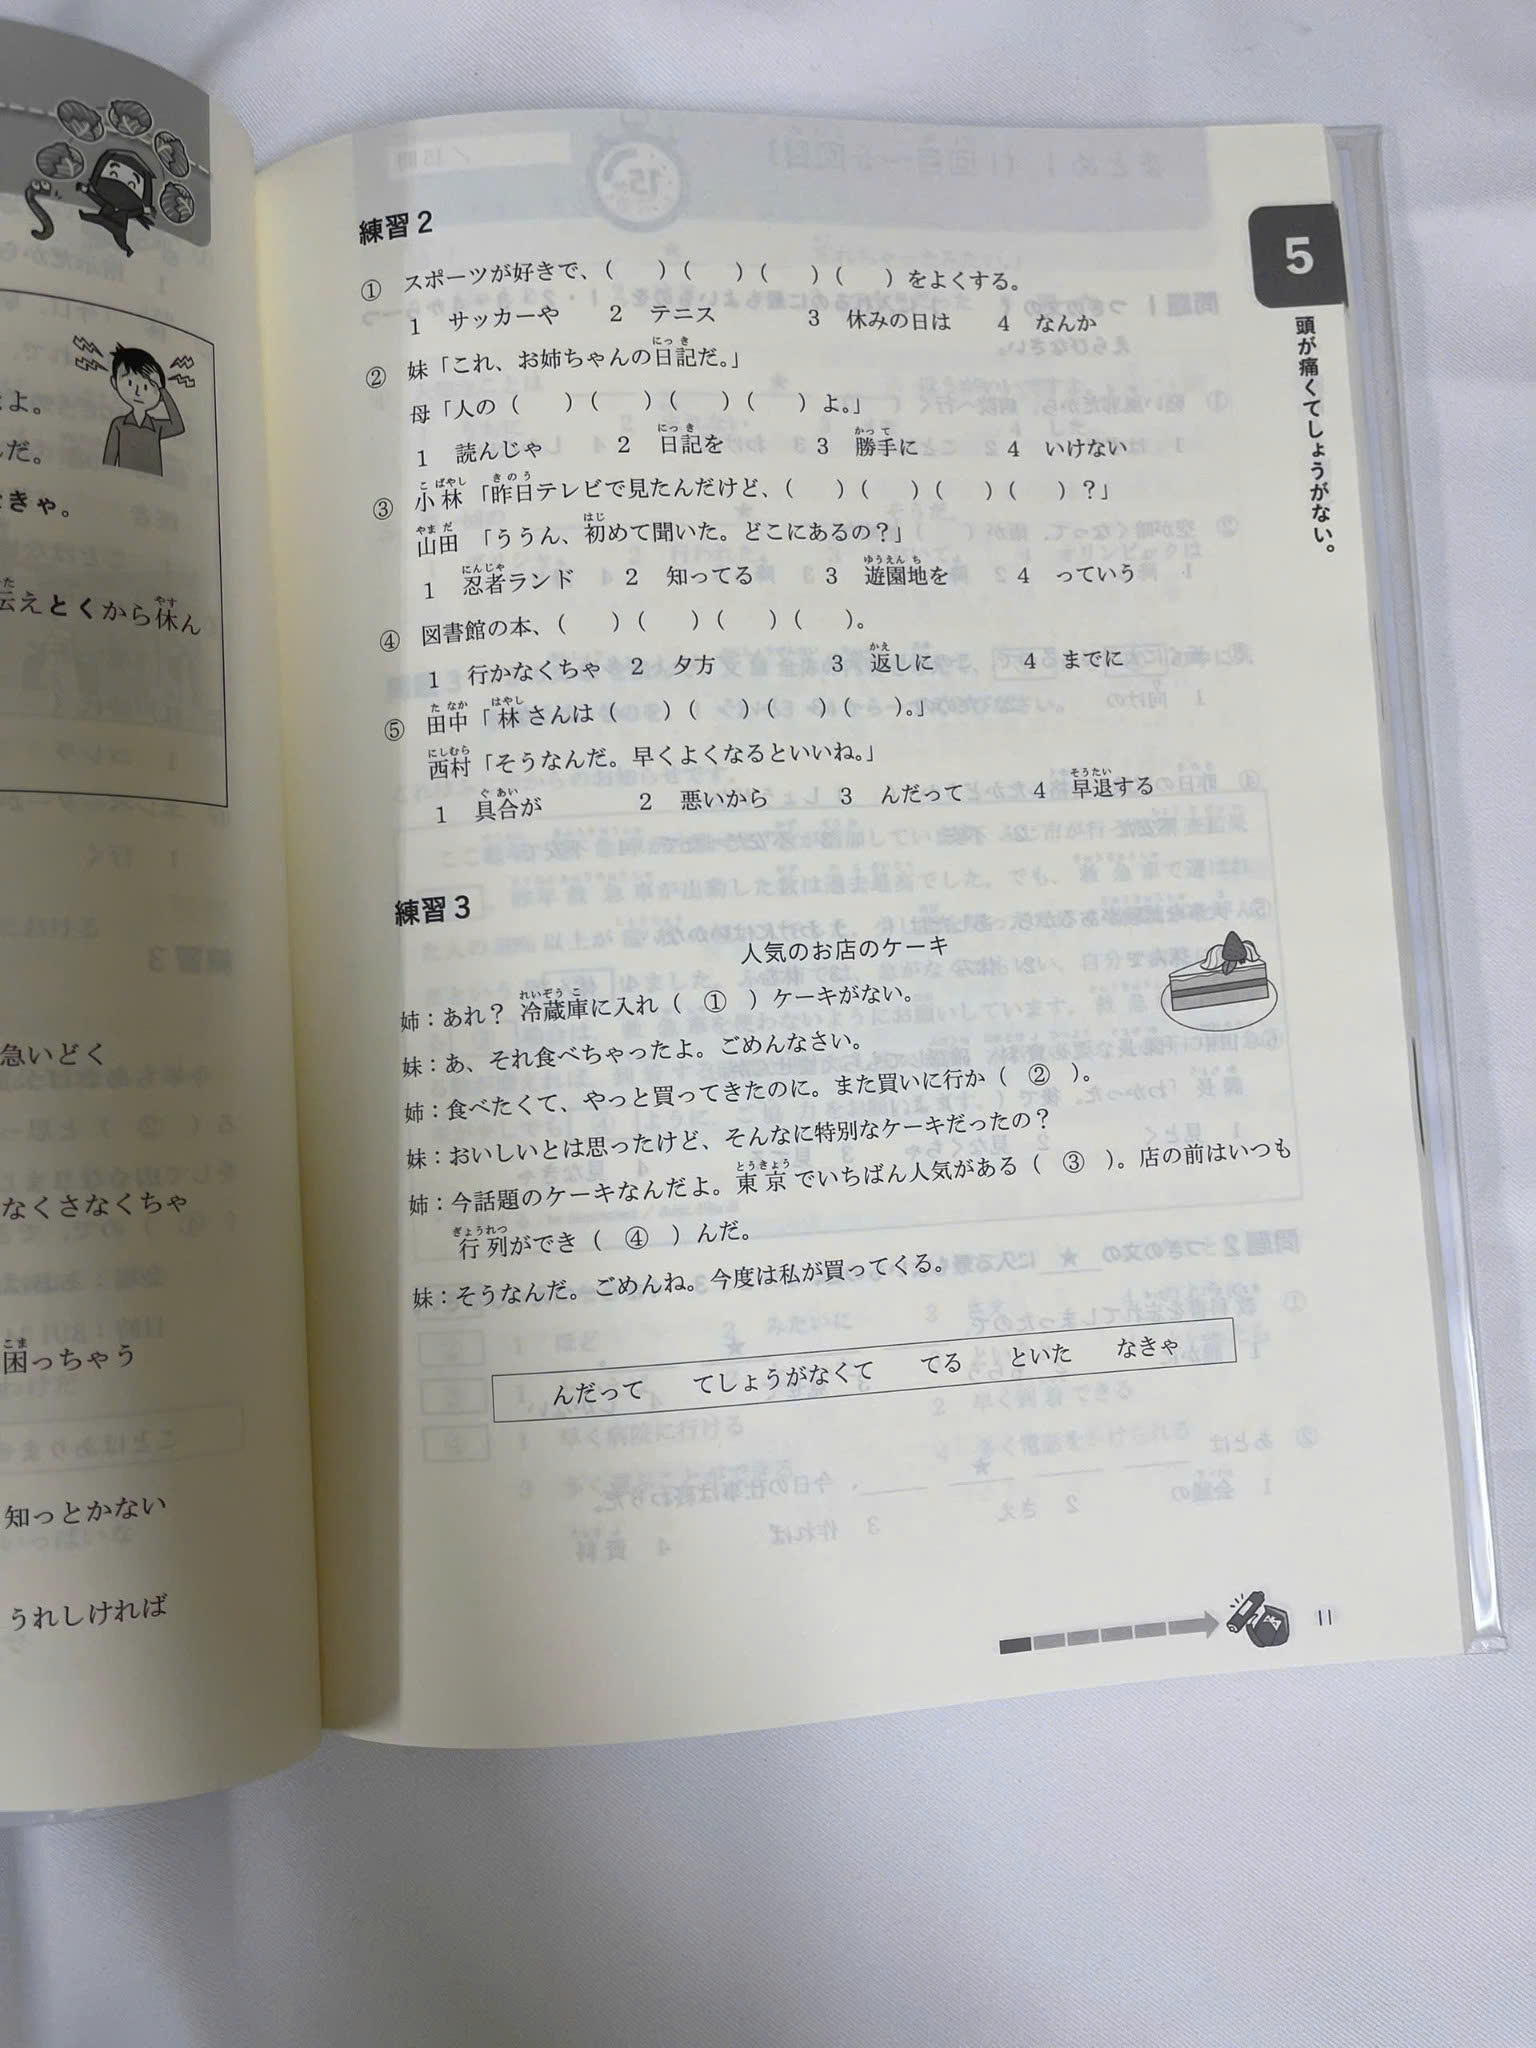 よ。
だ。
きゃ。
えとくから休ん
急いどく
なくさなくちゃ
困っちゃう
知っとかない
うれしければ
練習2
① スポーツが好きで、( ) ( ) ( ) ( ) をよくする。
1 サッカーや 2 テニス 3 休みの日は 4 なんか
② 妹「これ、お姉ちゃんの日記だ。」
母「人の ( ) ( ) ( ) ( ) よ。」
1 読んじゃ 2 日記を 3 勝手に 4 いけない
③ 小林「昨日テレビで見たんだけど、( ) ( ) ( ) ( ) ?」
山田「ううん、初めて聞いた。どこにあるの?」
1 忍者ランド 2 知ってる 3 遊園地を 4 っていう
④ 図書館の本、( ) ( ) ( ) ( )。
1 行かなくちゃ 2 夕方 3 返しに 4 までに
⑤ 田中「林さんは ( ) ( ) ( ) ( )。」
西村「そうなんだ。早くよくなるといいね。」
1 具合が 2 悪いから 3 んだって 4 早退する
練習3
人気のお店のケーキ
姉:あれ? 冷蔵庫に入れ ( ① ) ケーキがない。
妹:あ、それ食べちゃったよ。ごめんなさい。
姉:食べたくて、やっと買ってきたのに。また買いに行か ( ② )。
妹:おいしいとは思ったけど、そんなに特別なケーキだったの?
姉:今話題のケーキなんだよ。東京でいちばん人気がある ( ③ )。店の前はいつも
行列ができ ( ④ ) んだ。
妹:そうなんだ。ごめんね。今度は私が買ってくる。
んだって てしょうがなくて てる といた なきゃ
5
頭が痛くてしょうがない。
11